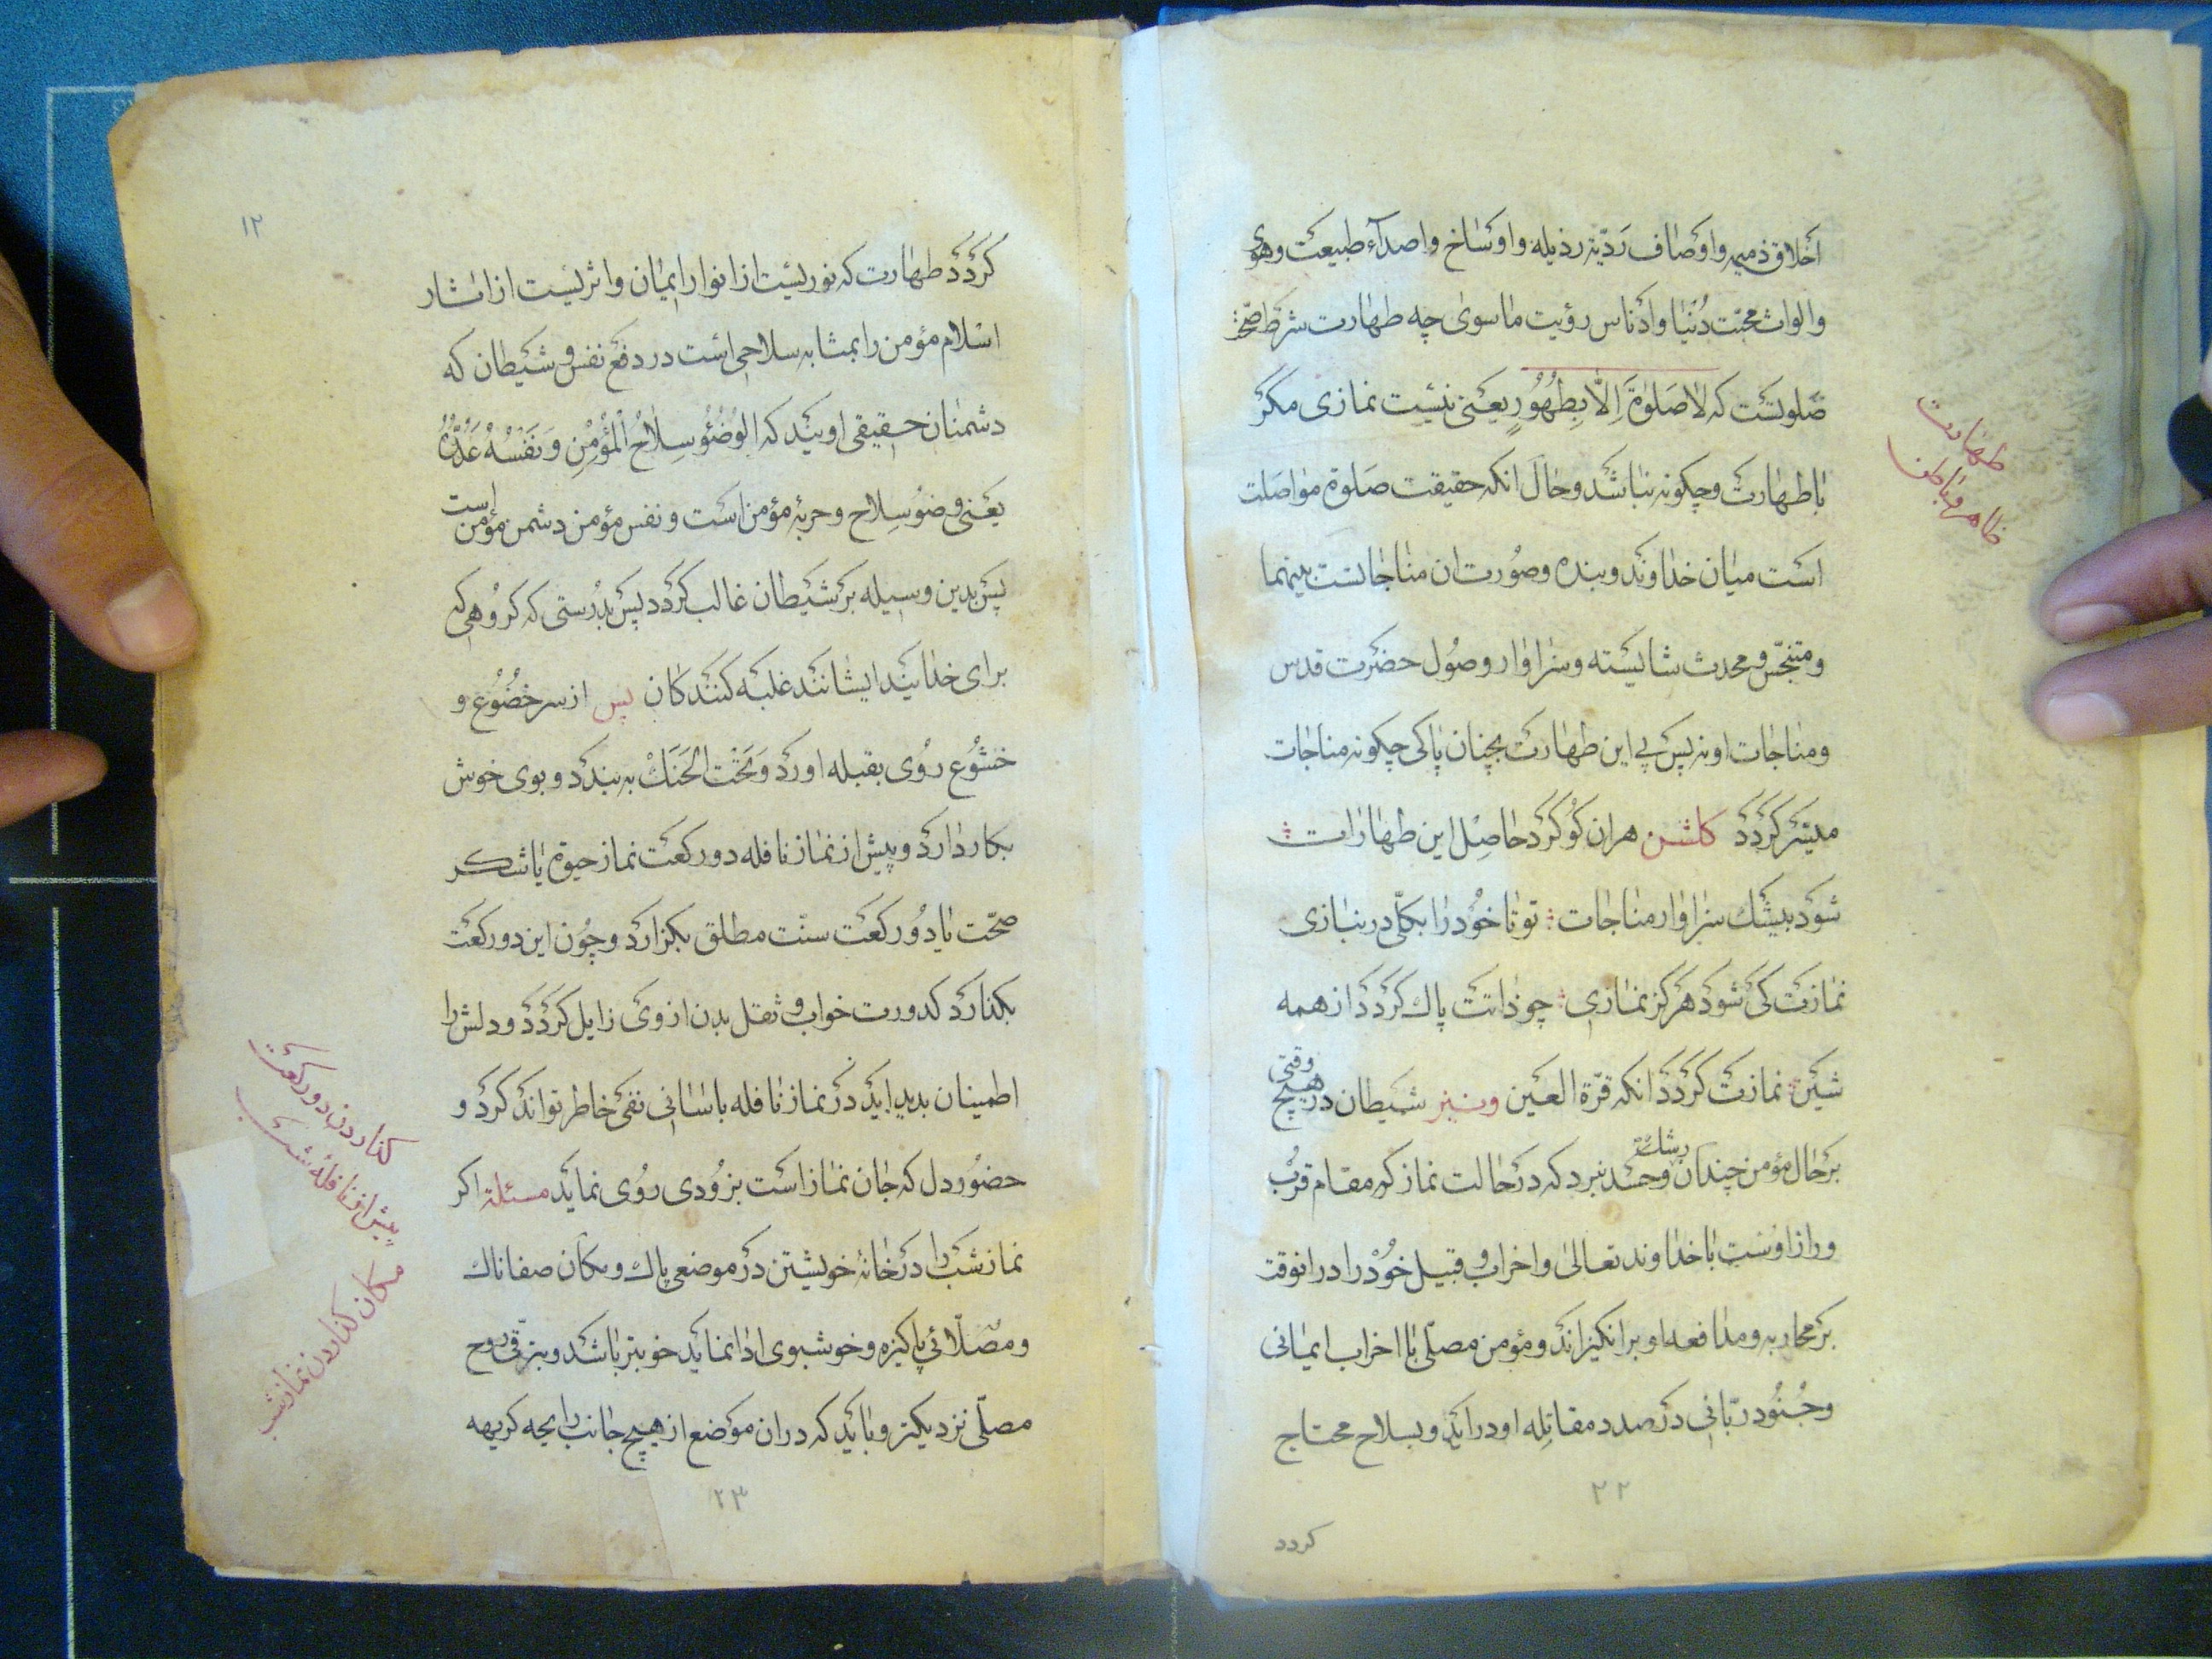 اخلاق ذمیمه و اوصاف ردّیه رذیله و اوساخ و اصدآء طبیعت و هوی
و الواث محبّت دُنیا و ادناس رؤیت ماسوی چه طهارت شرط صحّت
صلوتست که لا صَلوٰةَ اِلّا بِطُهُورٍ یعنی نیست نمازی مکر
با طهارت و چکونه نباشد و حال انکه حقیقت صلوة مواصلت
است میان خداوند و بنده و صورت ان مناجاتست بینهما
و متنجّس و محدث شایسته و سزاوار وصول حضرت قدس
و مناجات او نه پس بی این طهارت بچنان پاکی چکونه مناجات
میسّر کردد کلشن هران کو کرد حاصل این طهارات
شود بیشک سزاوار مناجات تو تا خود را بکلّی در نبازی
نمازت کی شود هرکز نمازی چو ذاتت پاک کردد از همه
شین نمازت کردد انکه قرّة العین و نیز شیطان در هیچ وقتی
بر حال مؤمن چندان رشک و حسد نبرد که در حالت نماز که مقام قرب
و راز اوست با خداوند تعالی و احزاب و قبیل خود را در انوقت
بر محاربه و مدافعه او برانکیزاند و مؤمن مصلّی با احزاب ایمانی
و جنود ربّانی در صدد مقاتله او دراید و بسلاح محتاج
طهارت
ظاهر و باطن
۲۲
کردد
۱۲
کردد طهارت که نوریست از انوار ایمان و اثریست از اثار
اسلام مؤمن را بمثابه سلاحی است در دفع نفس و شیطان که
دشمنان حقیقی اویند که الوُضُوُّ سِلاحُ الْمُؤْمِنِ وَ نَفْسُهُ عَدُوُّهُ
یعنی وضو سلاح و حربهٔ مؤمن است و نفس مؤمن دشمن مؤمن است
پس بدین وسیله بر شیطان غالب کردد پس بدرستی که کروهی که
برای خدایند ایشانند غلبه کنندکان پس از سر خضوع و
خشوع روی بقبله اورد و تحت الحنک به بندد و بوی خوش
بکار دارد و پیش از نماز نافله دو رکعت نماز حیوة یا شکر
صحّت یا دو رکعت سنّت مطلق بکزارد و چون این دو رکعت
بکذارد کدورت خواب و ثقل بدن از وی زایل کردد و دلش را
اطمینان بدید اید در نماز نافله باسانی نفی خاطر تواند کرد و
حضور دل که جان نماز است بزودی روی نماید مسئله اکر
نماز شب را در خانهٔ خویشتن در موضعی پاک و مکان صفاناک
و مصلّائی پاکیزه و خوشبوی ادا نماید خوبتر باشد و بترقّی روح
مصلّی نزدیکتر و باید که در ان موضع از هیچ جانب رایحه کریهه
کذاردن دو رکعت
پیش از نافلهٔ شب
مکان کذاردن نماز شب
۲۳